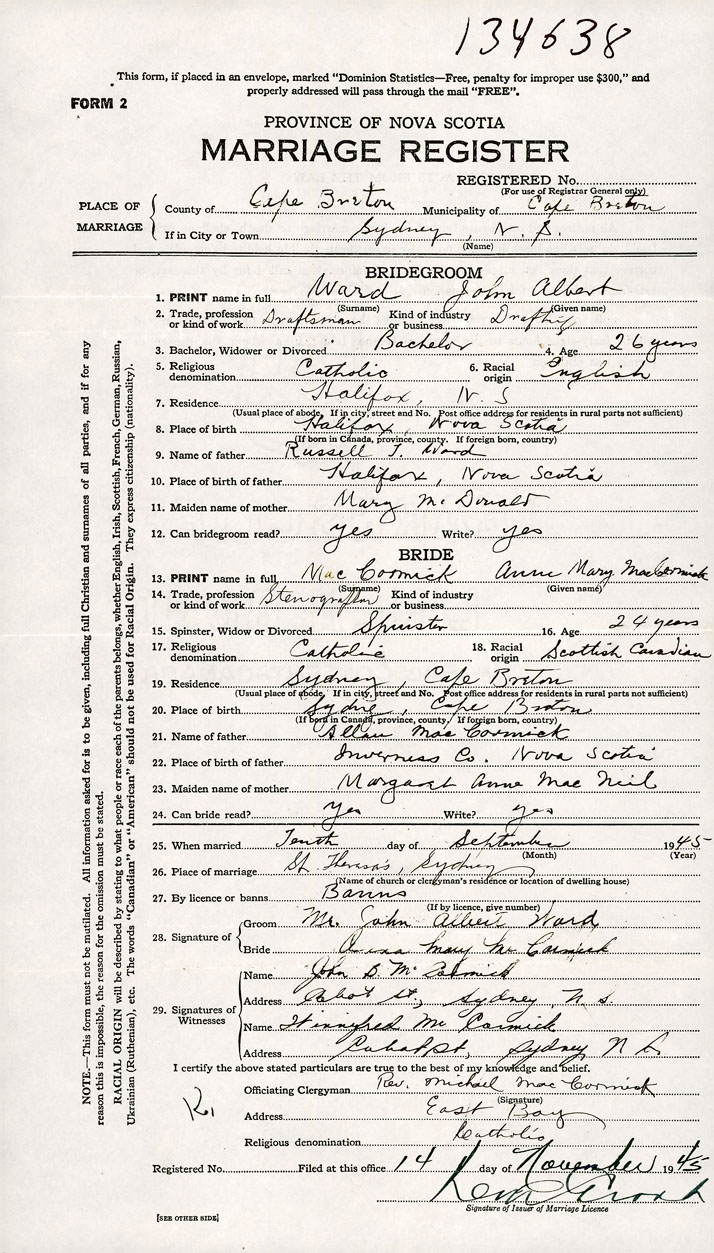 134638
This form, if placed in an envelope, marked "Dominion Statistics—Free, penalty for improper use $300," and
properly addressed will pass through the mail "FREE".
FORM 2
PROVINCE OF NOVA SCOTIA
MARRIAGE REGISTER
REGISTERED No.
(For use of Registrar General only)
PLACE OF MARRIAGE
County of Cape Breton Municipality of Cape Breton
If in City or Town Sydney, N. S.
(Name)
BRIDEGROOM
1. PRINT name in full Ward John Albert
(Surname) (Given name)
2. Trade, profession or kind of work Draftsman Kind of industry or business Drafting
3. Bachelor, Widower or Divorced Bachelor 4. Age 26 years
5. Religious denomination Catholic 6. Racial origin English
7. Residence Halifax, N. S
(Usual place of abode. If in city, street and No. Post office address for residents in rural parts not sufficient)
8. Place of birth Halifax, Nova Scotia
(If born in Canada, province, county. If foreign born, country)
9. Name of father Russell J. Ward
10. Place of birth of father Halifax, Nova Scotia
11. Maiden name of mother Mary McDonald
12. Can bridegroom read? yes Write? yes
BRIDE
13. PRINT name in full Mac Cormick Anne Mary MacCormick
(Surname) (Given name)
14. Trade, profession or kind of work Stenographer Kind of industry or business
15. Spinster, Widow or Divorced Spinster 16. Age 24 years
17. Religious denomination Catholic 18. Racial origin Scottish Canadian
19. Residence Sydney, Cape Breton
(Usual place of abode. If in city, street and No. Post office address for residents in rural parts not sufficient)
20. Place of birth Sydney, Cape Breton
(If born in Canada, province, county. If foreign born, country)
21. Name of father Allan MacCormick
22. Place of birth of father Inverness Co. Nova Scotia
23. Maiden name of mother Margaret Anne Mac Neil
24. Can bride read? yes Write? yes
25. When married Tenth day of September 1945
(Month) (Year)
26. Place of marriage St. Theresa's, Sydney
(Name of church or clergyman's residence or location of dwelling house)
27. By licence or banns Banns
(If by licence, give number)
28. Signature of
Groom Mr. John Albert Ward
Bride Anna Mary McCormick
29. Signatures of Witnesses
Name John B. McCormick
Address Cabot St., Sydney, N.S.
Name Winnifred McCormick
Address Cabot St, Sydney N S.
I certify the above stated particulars are true to the best of my knowledge and belief.
Officiating Clergyman Rev. Michael MacCormick
(Signature)
Address East Bay
Religious denomination Catholic
Registered No. Filed at this office 14 day of November 1945
Signature of Issuer of Marriage Licence
[SEE OTHER SIDE]
NOTE.—This form must not be mutilated. All information asked for is to be given, including full Christian and surnames of all parties, and if for any
reason this is impossible, the reason for the omission must be stated.
RACIAL ORIGIN will be described by stating to what people or race each of the parents belongs, whether English, Irish, Scottish, French, German, Russian,
Ukrainian (Ruthenian), etc. The words "Canadian" or "American" should not be used for Racial Origin. They express citizenship (nationality).